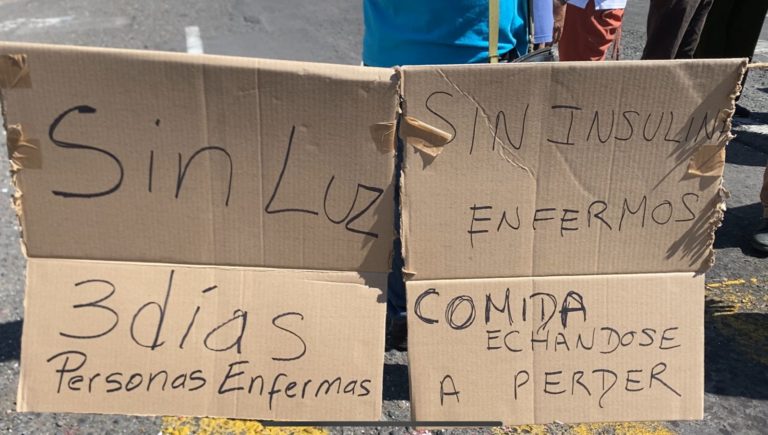 Sin Luz
3 días
Personas Enfermas
SIN INSULINA
ENFERMOS
COMIDA
ECHANDOSE
A PERDER